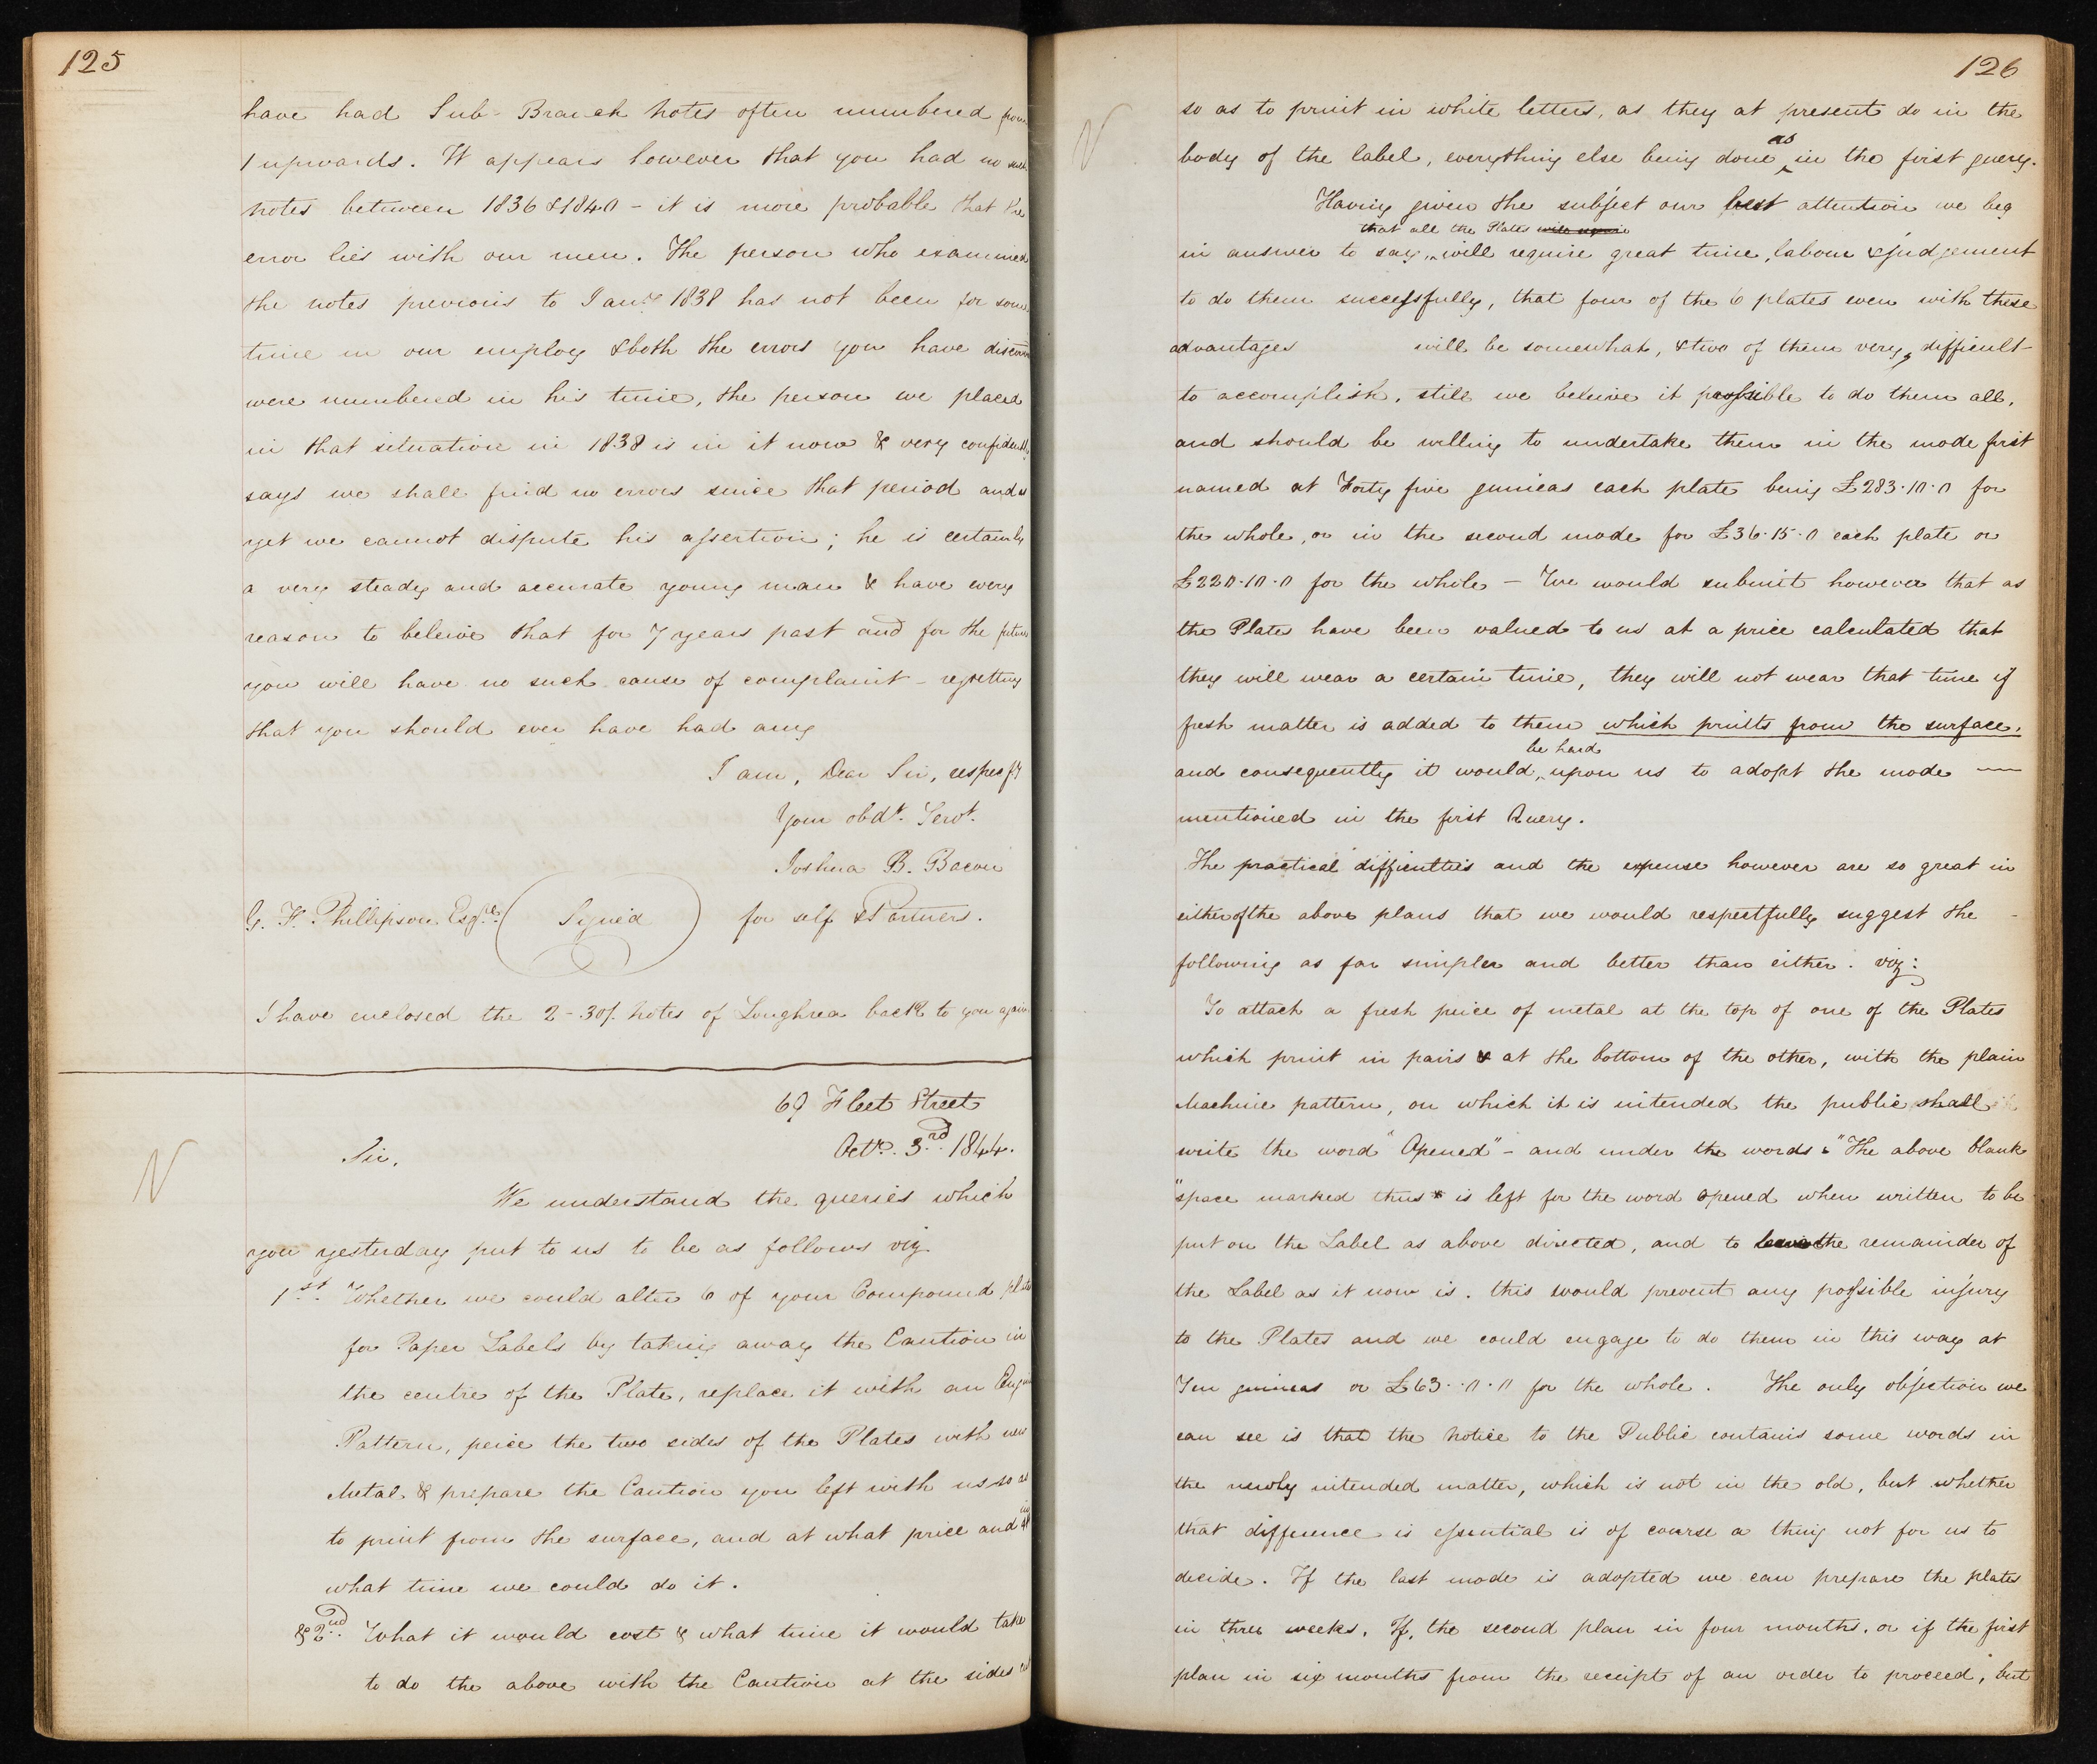 125
have had Sub-Branch notes often numbered from
1 upwards. It appears however that you had no such
notes between 1836 & 1840 - it is more probable that the
error lies with our men. The person who examined
the notes previous to Jany 1838 has not been for some
time in our employ & both the errors you have
were numbered in his time, the person we placed
in that situation in 1838 is in it now & very confidently
says we shall find no errors since that period and as
yet we cannot dispute his assertion; he is certainly
a very steady and accurate young man & have every
reason to beleive that for 7 years past and for the future
you will have no such cause of complaint - regretting
that you should ever have had any
I am, Dear Sir, respecfy
Your obdt. Servt.
Joshua B. Bacon
G. H. Phillipson Esqre. (Signed) for self & Partners.
I have enclosed the 2 - 30/. notes of Loughrea back to you again
69 Fleet Street
Octr. 3rd 1844.
N
Sir,
We understand the queries which
you yesterday put to us to be as follows viz
1st. Whether we could alter 6 of your Compound plates
for Paper Labels by taking away the Caution in
the centre of the Plate, replace it with an
Pattern, peice the two sides of the Plates with new
Metal & prepare the Caution you left with us so as
to print from the surface, and at what price and in
what time we could do it.
& 2nd. What it would cost & what time it would take
to do the above with the Caution at the sides
126
N
so as to print in white letters, as they at present do in the
body of the label, everything else being done as in the first query.
Having given the subject our best attention we beg
that all the Plates will require
in answer to say, will require great time, labour & judgement
to do them successfully, that four of the 6 plates even with these
advantages will be somewhat, & two of them very, difficult
to accomplish, still we beleive it possible to do them all,
and should be willing to undertake them in the mode first
named at Forty five guineas each plate being £283.10.0 for
the whole, or in the second mode for £36.15.0 each plate or
£220.10.0 for the whole - We would submit however that as
the Plates have been valued to us at a price calculated that
they will wear a certain time, they will not wear that time if
fresh matter is added to them which prints from the surface,
be hard
and consequently it would, upon us to adopt the mode
mentioned in the first Query.
The practical difficulties and the expense however are so great in
either of the above plans that we would respectfully suggest the
following as far simpler and better than either. viz:
To attach a fresh peice of metal at the top of one of the Plates
which print in pairs & at the bottom of the other, with the plain
Machine pattern, on which it is intended the public shall
write the word "Opened" - and under the words "The above blank
"space marked thus * is left for the word opened when written to be
put on the Label as above directed, and to leave the remainder of
the Label as it now is. this would prevent any possible injury
to the Plates and we could engage to do them in this way at
Ten guineas or £63..0.0 for the whole. The only objection we
can see is that the Notice to the Public contains some words in
the newly intended matter, which is not in the old, but whether
that difference is essential is of course a thing not for us to
decide. If the last mode is adopted we can prepare the plates
in three weeks, If, the second plan in four months, or if the first
plan in six months from the receipt of an order to proceed, but